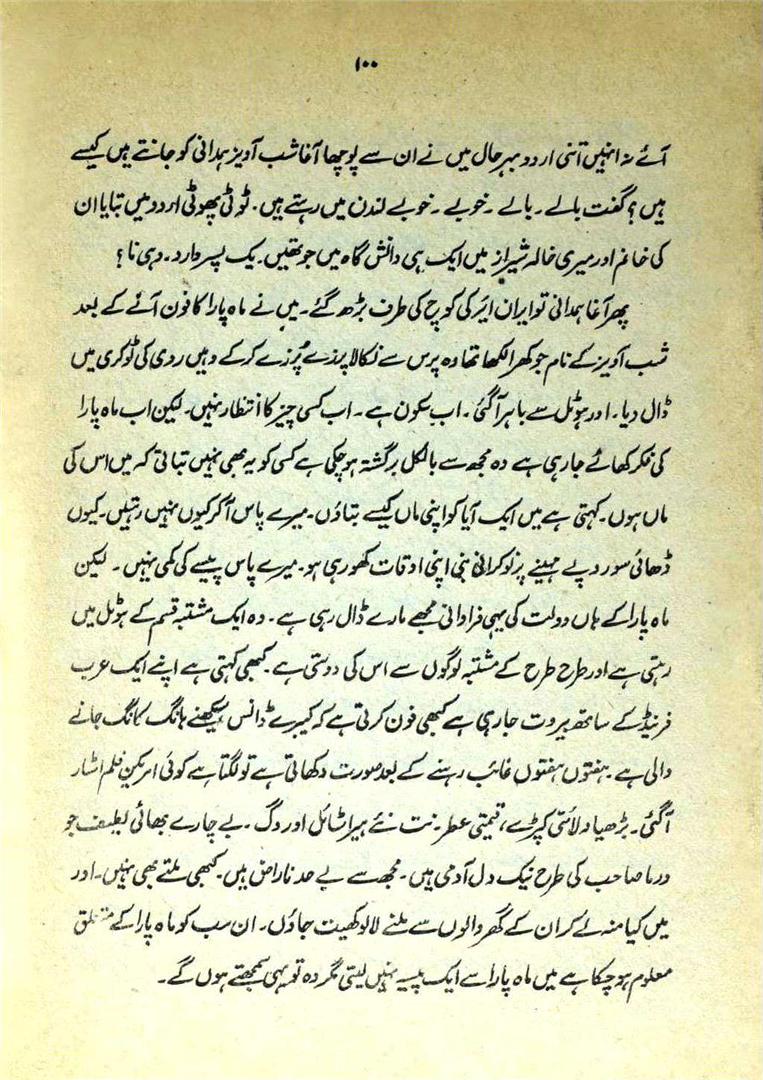 ۱۰۰
آئے نہ انہیں اتنی اردو بہر حال میں نے ان سے پوچھا آغا شب آویز ہمدانی کو جانتے ہیں کیسے
ہیں؟ گفت بالے۔ بالے۔ خوبے۔ خوبے لندن میں رہتے ہیں۔ ٹوٹی پھوٹی اردو میں بتایا ان
کی خانم اور میری خالہ شیراز میں ایک ہی دانش گاہ میں جو تھیں۔ یک پسر دارد۔ وہی نا؟
پھر آغا ہمدانی تو ایران ایر کی کوچ کی طرف بڑھ گئے۔ میں نے ماہ پارا کا فون آنے کے بعد
شب آویز کے نام جو کھرا لکھا تھا وہ پرس سے نکالا پرزے پُرزے کر کے وہیں ردی کی ٹوکری میں
ڈال دیا۔ اور ہوٹل سے باہر آ گئی۔ اب سکون ہے۔ اب کسی چیز کا انتظار نہیں۔ لیکن اب ماہ پارا
کی فکر کھائے جا رہی ہے وہ مجھ سے بالکل برگشتہ ہو چکی ہے کسی کو یہ بھی نہیں بتاتی کہ میں اس کی
ماں ہوں۔ کہتی ہے میں ایک آیا کو اپنی ماں کیسے بتاؤں۔ میرے پاس آ کر کیوں نہیں رہتیں۔ کیوں
ڈھائی سو روپے مہینے پر نوکرانی بنی اپنی اوقات کھو رہی ہو۔ میرے پاس پیسے کی کمی نہیں۔ لیکن
ماہ پارا کے ہاں دولت کی یہی فراوانی مجھے مارے ڈال رہی ہے۔ وہ ایک مشتبہ قسم کے ہوٹل میں
رہتی ہے اور طرح طرح کے مشتبہ لوگوں سے اس کی دوستی ہے۔ کبھی کہتی ہے اپنے ایک عرب
فرنیڈ کے ساتھ بیروت جا رہی ہے کبھی فون کرتی ہے کہ کیبرے ڈانس سیکھنے ہانگ کانگ جانے
والی ہے۔ ہفتوں ہفتوں غائب رہنے کے بعد صورت دکھاتی ہے تو لگتا ہے کوئی امریکن فلم اسٹار
آ گئی۔ بڑھیا ولائتی کپڑے، قیمتی عطر۔ نت نئے ہیر اسٹائل اور وگ۔ بے چارے بھائی لطیف جو
ورما صاحب کی طرح نیک دل آدمی ہیں۔ مجھ سے بے حد ناراض ہیں۔ کبھی ملتے بھی نہیں۔ اور
میں کیا منہ لے کر ان کے گھر والوں سے ملنے لالو کھیت جاؤں۔ ان سب کو ماہ پارا کے متعلق
معلوم ہو چکا ہے میں ماہ پارا سے ایک پیسہ نہیں لیتی مگر وہ تو یہی سمجھتے ہوں گے۔